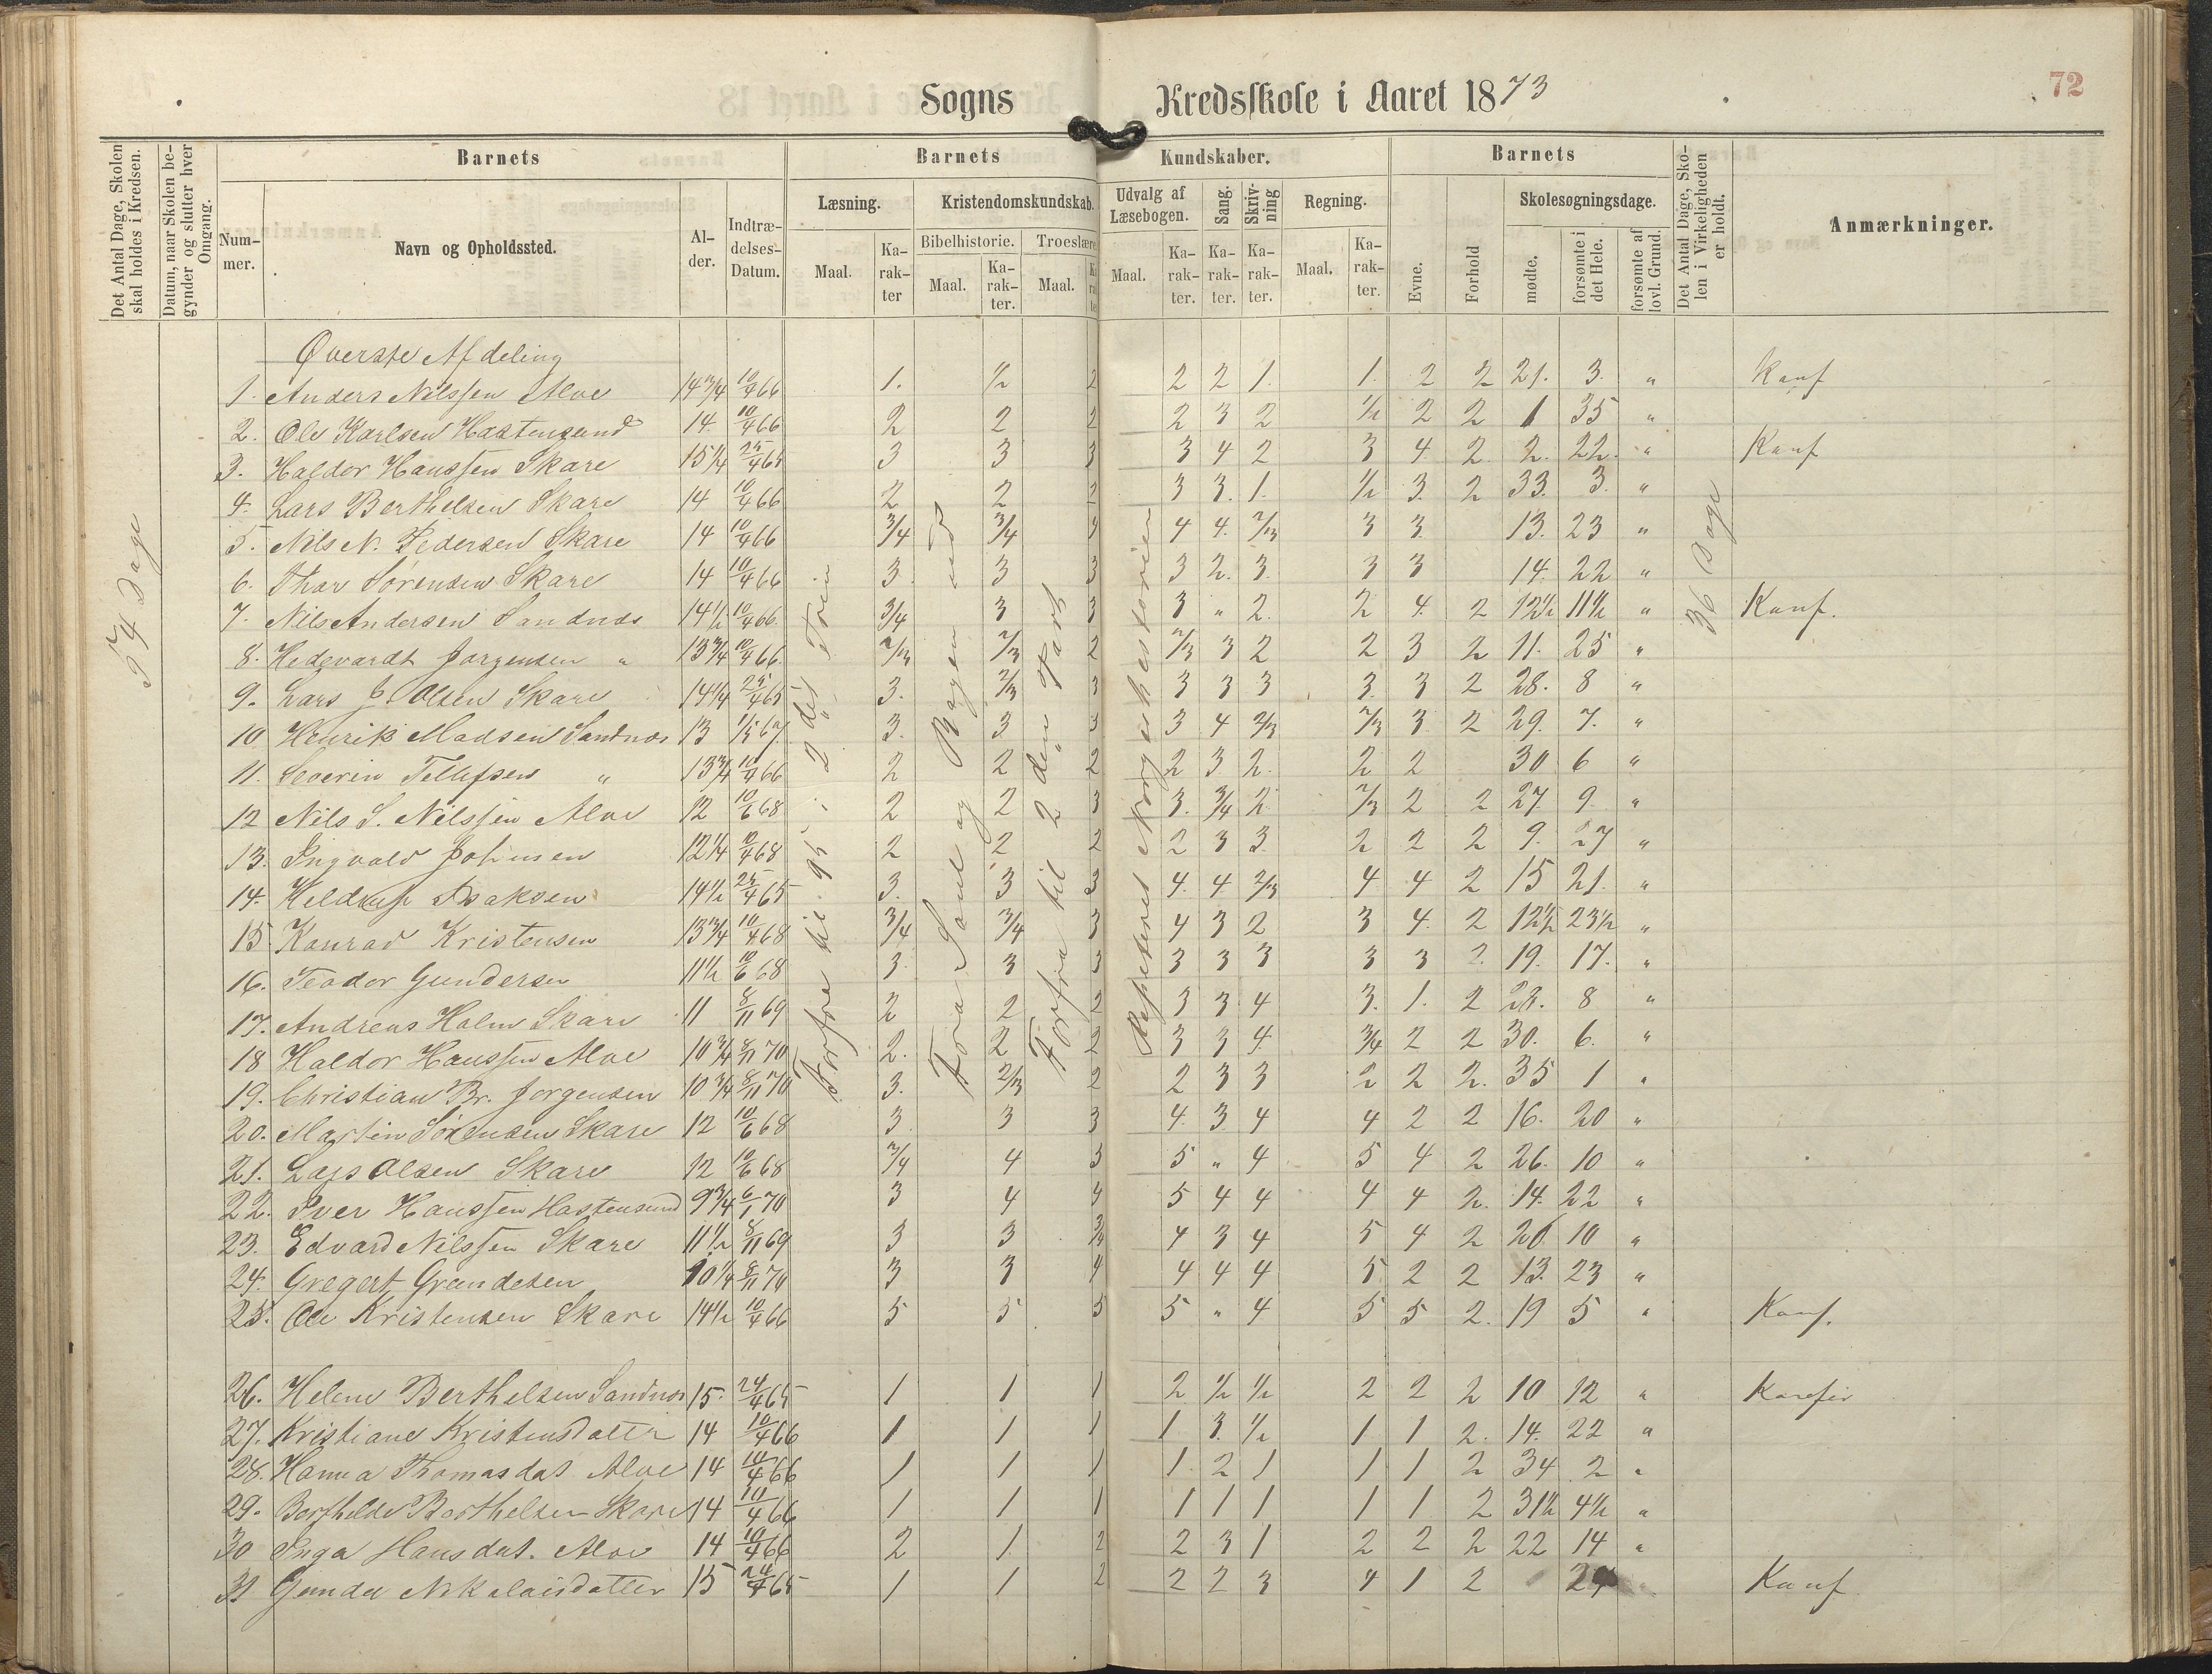 Sogns Kredsskole i Aaret 1873
72
Det Antal Dage, Skolen skal holdes i Kredsen.
Datum, naar Skolen begynder og slutter hver Omgang.
Barnets
Barnets Kundskaber.
Barnets
Det Antal Dage, Skolen i Virkeligheden er holdt.
Anmærkninger.
Nummer.
Navn og Opholdssted.
Alder.
Indtrædelses-Datum.
Læsning.
Kristendomskundskab.
Udvalg af Læsebogen.
Sang.
Skrivning
Regning.
Evne.
Forhold
Skolesøgningsdage.
Bibelhistorie.
Troeslære
Maal.
Karakter
Maal.
Karakter.
Maal.
Maal.
Karakter.
Karakter.
Karakter.
Maal.
Karakter.
mødte.
forsømte i det Hele.
forsømte af lovl. Grund.
54 Dage
36 Dage
Forfra til 95 i 2det Trin
Forfra til 2den Part
Øverste Afdeling
1. Anders Nilssen Aloe 14 3/4 10/4 66 1. 1/2 2 2 2 1. 1. 2 2 21. 3. " Konf
2. Ole Karlsen Hastensund 14 10/4 66 2 2 2 2 3 2 1/2 2 2 1 35 "
3. Haldor Hanssen Skare 15 1/4 25/4 65 3 3 3 3 4 2 3 4. 2. 2. 22. " Konf
4. Lars Berthelsen Skare 14 10/4 66 2 2 2 3 3. 1. 1/2 3. 2 33. 3. "
5. Nils N. Pedersen Skare 14 10/4 66 3/4 3/4 4 4 4. 2/3 3 3. 13. 23 "
6. Thor Sørensen Skare 14 10/4 66 3. 3 3 3 2. 3. 3 3 14. 22 "
7. Nils Andersen Sandnes 14 1/2 10/4 66. 3/4 3 3 3 " 2. 2 4. 2 12 1/2 11 1/2 " Konf.
8. Hedevardt Jørgensen " 13 3/4 10/4 66. 2/3 2/3 2 2/3 3 2 2 3 2 11. 25 "
9. Lars J. Olsen Skare 14 1/4 25/4 65 3. 2/3 3 3 3 3 3. 3 2 28. 8 "
10 Henrik Madsen Sandnes 13 1/5 67. 3. 3 3 3 4 2/3 2/3 3 2 29. 7. "
11. Severin Tellefsen " 13 3/4 10/4 66 2 2 2 2 3. 2. 2 2 30 6 "
12 Nils S. Nilssen Aloe 12 10/6 68 2 2 3 3. 3/4 2 2/3 2 2 27. 9. "
13. Ingvald Johnsen 12 1/4 10/4 68 2 2 2 2 3 3. 2 2 2 9. 27 "
14. Isaksen 14 1/2 25/4 65 3. 3 3 4. 4. 2/3 4 4 2 15 21. "
15. Konrad Kristensen 13 3/4 10/4 68 3/4 3/4 3 4 3 2 3 4. 2 12 1/2 23 1/2 "
16. Teodor Gundersen 11 1/2 10/6 68 3. 3 3 3 3 3 3 3 2. 19. 17. "
17. Andreas Holm Skare 11 8/11 69 2 2 2 3 3. 4 3. 1. 2 28. 8 "
18 Haldor Hanssen Aloe 10 3/4 8/11 70 2. 2 2 3 3 4 3/4 2 2 30. 6. "
19. Christian Br. Jørgensen 10 3/4 8/11 70 3. 2/3 2 2 3 3 2 2 2. 35 1 "
20. Martin Sørensen Skare 12 10/6 68 3. 3 3 4. 3. 4 4 2 2 16. 20 "
21. Lars Olsen Skare 12 10/6 68 3/4 4 3 5 " 4 5 4 2 26. 10 "
22. Iver Hanssen Hastensund 9 3/4 6/1 70 3 4 4 5 4 4 4 4 2. 14. 22 "
23. Edvard Nilssen Skare 11 1/2 8/11 69 3 3 3/4 4 3 4 5 4 2 26 10 "
24. Gregert Grandesen 10 1/4 8/11 70 3 3 4 4 4 4 5 2 2 13. 23 "
25. Ole Kristensen Skare 14 1/2 10/4 66 5 5 5 5 " 4 5 5 2. 19 5 " Konf.
26. Helene Berthelsen Sandnes 15. 24/4 65 1 1 1 2 1/2 1/2 2 2 2 10 12 "
27. Kristiane Kristensdatter 14 10/4 66 1 1 1 1 3. 1/2 1 1 2. 14. 22 "
28. Hanna Thomasdat Aloe 14 10/4 66 1 1 1 1 2 1 1 1 2 34 2 "
29. Berthelsen Skare 14 10/4 66 1 1 1 1 1 1 1 1. 2 31 1/2 4 1/2 "
30 Inga Hansdat. Aloe 14 10/4 66 2 1 2 2 3 1 2 2 2 22 14 "
31 Gunda Nikolaisdatter 15 24/4 65 1 1 2 2 2 3 4 1 2 24 Konf